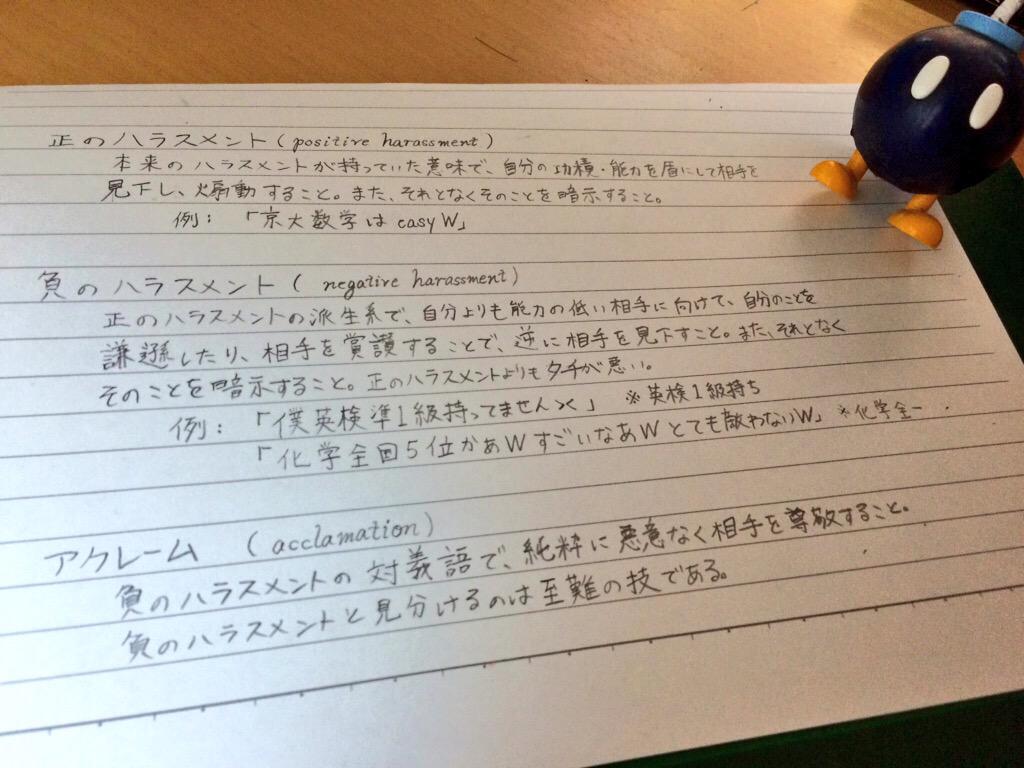 正のハラスメント(positive harassment)
本来のハラスメントが持っていた意味で、自分の功積・能力を盾にして相手を
見下し、煽動すること。また、それとなくそのことを暗示すること。
例:「京大数学は easy W」
負のハラスメント(negative harassment)
正のハラスメントの派生系で、自分よりも能力の低い相手に向けて、自分のことを
謙遜したり、相手を賞讃することで、逆に相手を見下すこと。また、それとなく
そのことを暗示すること。正のハラスメントよりもタチが悪い。
例:「僕英検準1級持ってません><」 ※英検1級持ち
「化学全国5位かぁWすごいなあWとても敵わないW」※化学全一
アクレーム (acclamation)
負のハラスメントの対義語で、純粋に悪意なく相手を尊敬すること。
負のハラスメントと見分けるのは至難の技である。